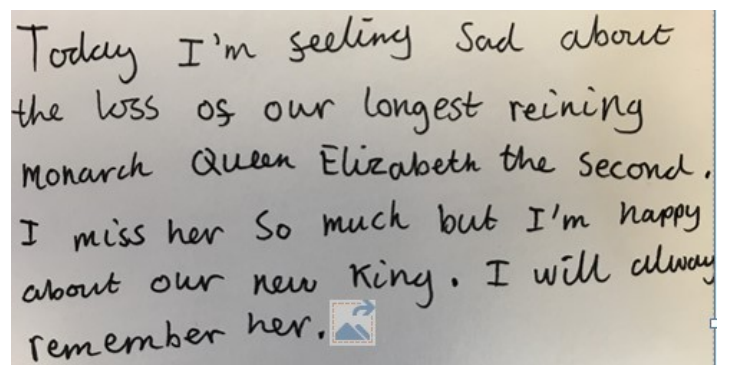 Today I'm feeling Sad about
the loss of our longest reining
monarch Queen Elizabeth the Second.
I miss her So much but I'm happy
about our new King. I will alway
remember her.